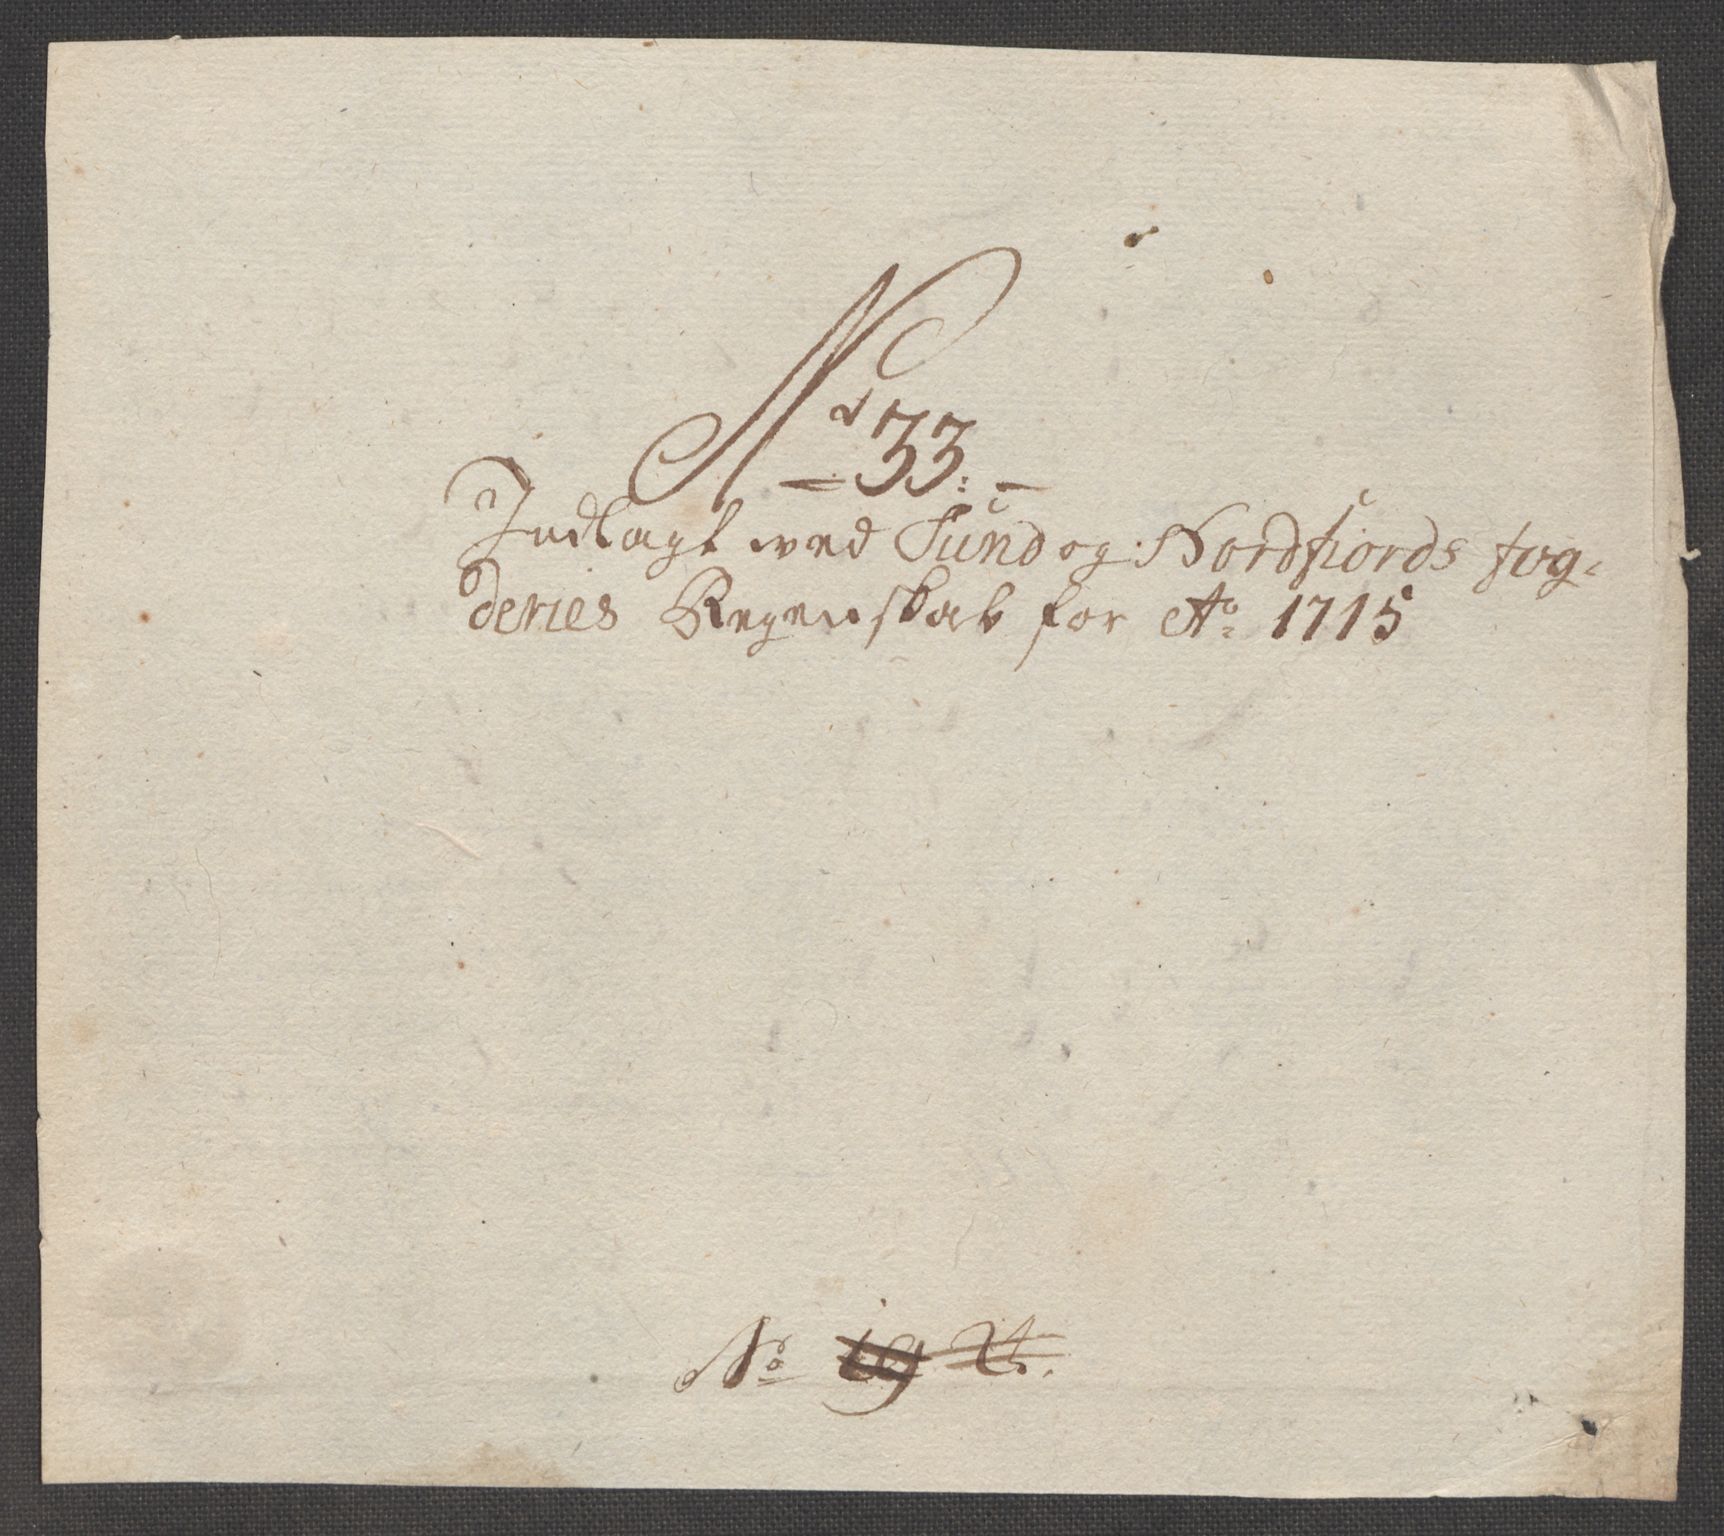 No 33.
Indlagt wed Sund og Nordfiords fog-
deries Regenskab for Ao 1715
No 19